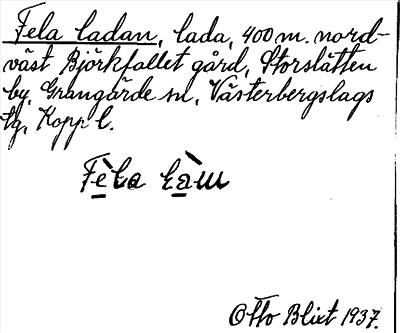 Fela ladan, lada, 400 m. nord-
väst Björkfallet gård, Storslätten
by, Grangärde sn, Västerbergslags
tg, Kopp l.
Fè̱la là̱m
Otto Blixt 1937.